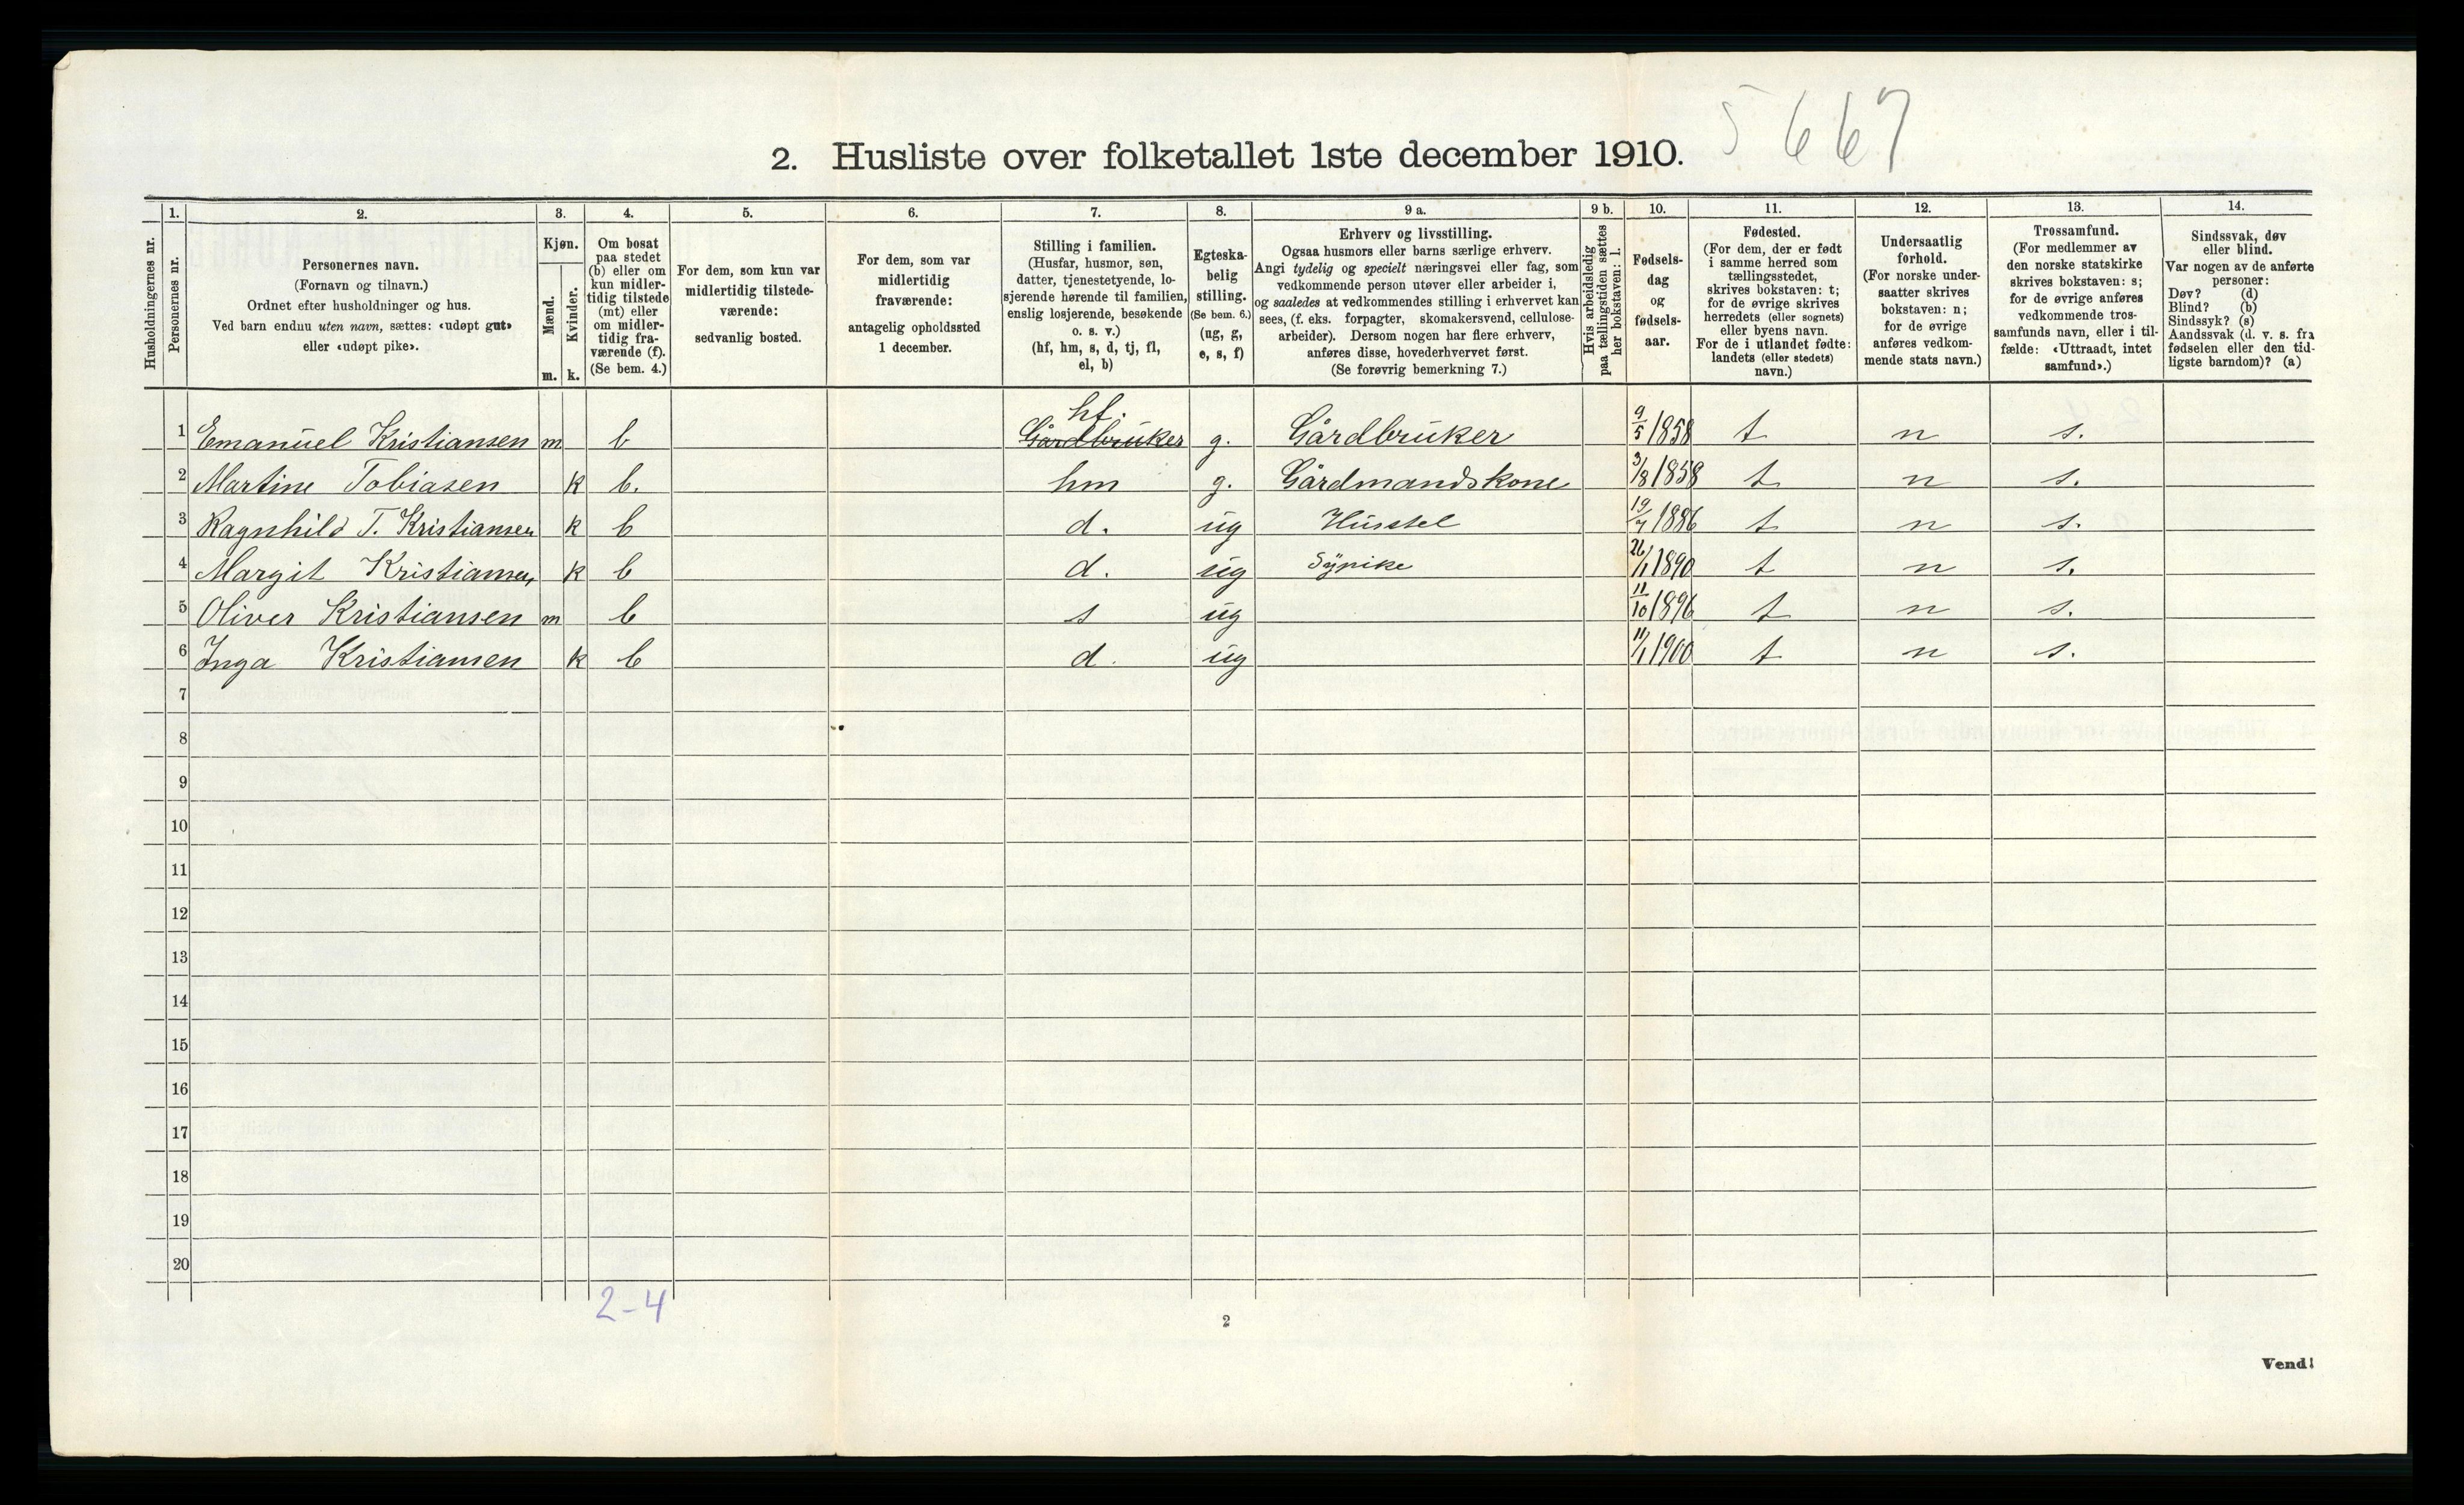 5667
2. Husliste over folketallet 1ste december 1910.
Husholdningernes nr.
1.
Personernes nr.
2.
Personernes navn.
(Fornavn og tilnavn.)
Ordnet efter husholdninger og hus.
Ved barn endnu uten navn, sættes: «udøpt gut»
eller «udøpt pike».
3.
Kjøn.
Mænd.
Kvinder.
m. k.
4.
Om bosat
paa stedet
(b) eller om
kun midler-
tidig tilstede
(mt) eller
om midler-
tidig fra-
værende (f).
(Se bem. 4.)
5.
For dem, som kun var
midlertidig tilstede-
værende:
sedvanlig bosted.
6.
For dem, som var
midlertidig
fraværende:
antagelig opholdssted
1 december.
7.
Stilling i familien.
(Husfar, husmor, søn,
datter, tjenestetyende, lo-
sjerende hørende til familien,
enslig losjerende, besøkende
o. s. v.)
(hf, hm, s, d, tj, fl,
el, b)
8.
Egteska-
belig
stilling.
(Se bem. 6.)
(ug, g,
e, s, f)
9 a.
Erhverv og livsstilling.
Ogsaa husmors eller barns særlige erhverv.
Angi tydelig og specielt næringsvei eller fag, som
vedkommende person utøver eller arbeider i,
og saaledes at vedkommendes stilling i erhvervet kan
sees, (f. eks. forpagter, skomakersvend, cellulose-
arbeider). Dersom nogen har flere erhverv,
anføres disse, hovederhvervet først.
(Se forøvrig bemerkning 7.)
9 b.
Hvis arbeidsledig
paa tællingstiden sættes
her bokstaven: l.
10.
Fødsels-
dag
og
fødsels-
aar.
11.
Fødested.
(For dem, der er født
i samme herred som
tællingsstedet,
skrives bokstaven: t;
for de øvrige skrives
herredets (eller sognets)
eller byens navn.
For de i utlandet fødte:
landets (eller stedets)
navn.)
12.
Undersaatlig
forhold.
(For norske under-
saatter skrives
bokstaven: n;
for de øvrige
anføres vedkom-
mende stats navn.)
13.
Trossamfund.
(For medlemmer av
den norske statskirke
skrives bokstaven: s;
for de øvrige anføres
vedkommende tros-
samfunds navn, eller i til-
fælde: «Uttraadt, intet
samfund».)
14.
Sindssvak, døv
eller blind.
Var nogen av de anførte
personer:
Døv? (d)
Blind? (b)
Sindssyk? (s)
Aandssvak (d. v. s. fra
fødselen eller den tid-
ligste barndom)? (a)
hf.
1 Emanuel Kristiansen m b Gårdbruker g. Gårdbruker 9/5 1858 t n s.
2 Martine Tobiasen k b. hm g. Gårdmandskone 3/8 1858 t n s.
3 Ragnhild T. Kristiansen k b d. ug Husstel 19/7 1886 t n s.
4 Margit Kristiansen k b d. ug Sypike 26/1 1890 t n s.
5 Oliver Kristiansen m b s ug 11/10 1896 t n s.
6 Inga Kristiansen k b d. ug 11/1 1900 t n s.
7
8
9
10
11
12
13
14
15
16
17
18
19
20
2-4
2
Vend!